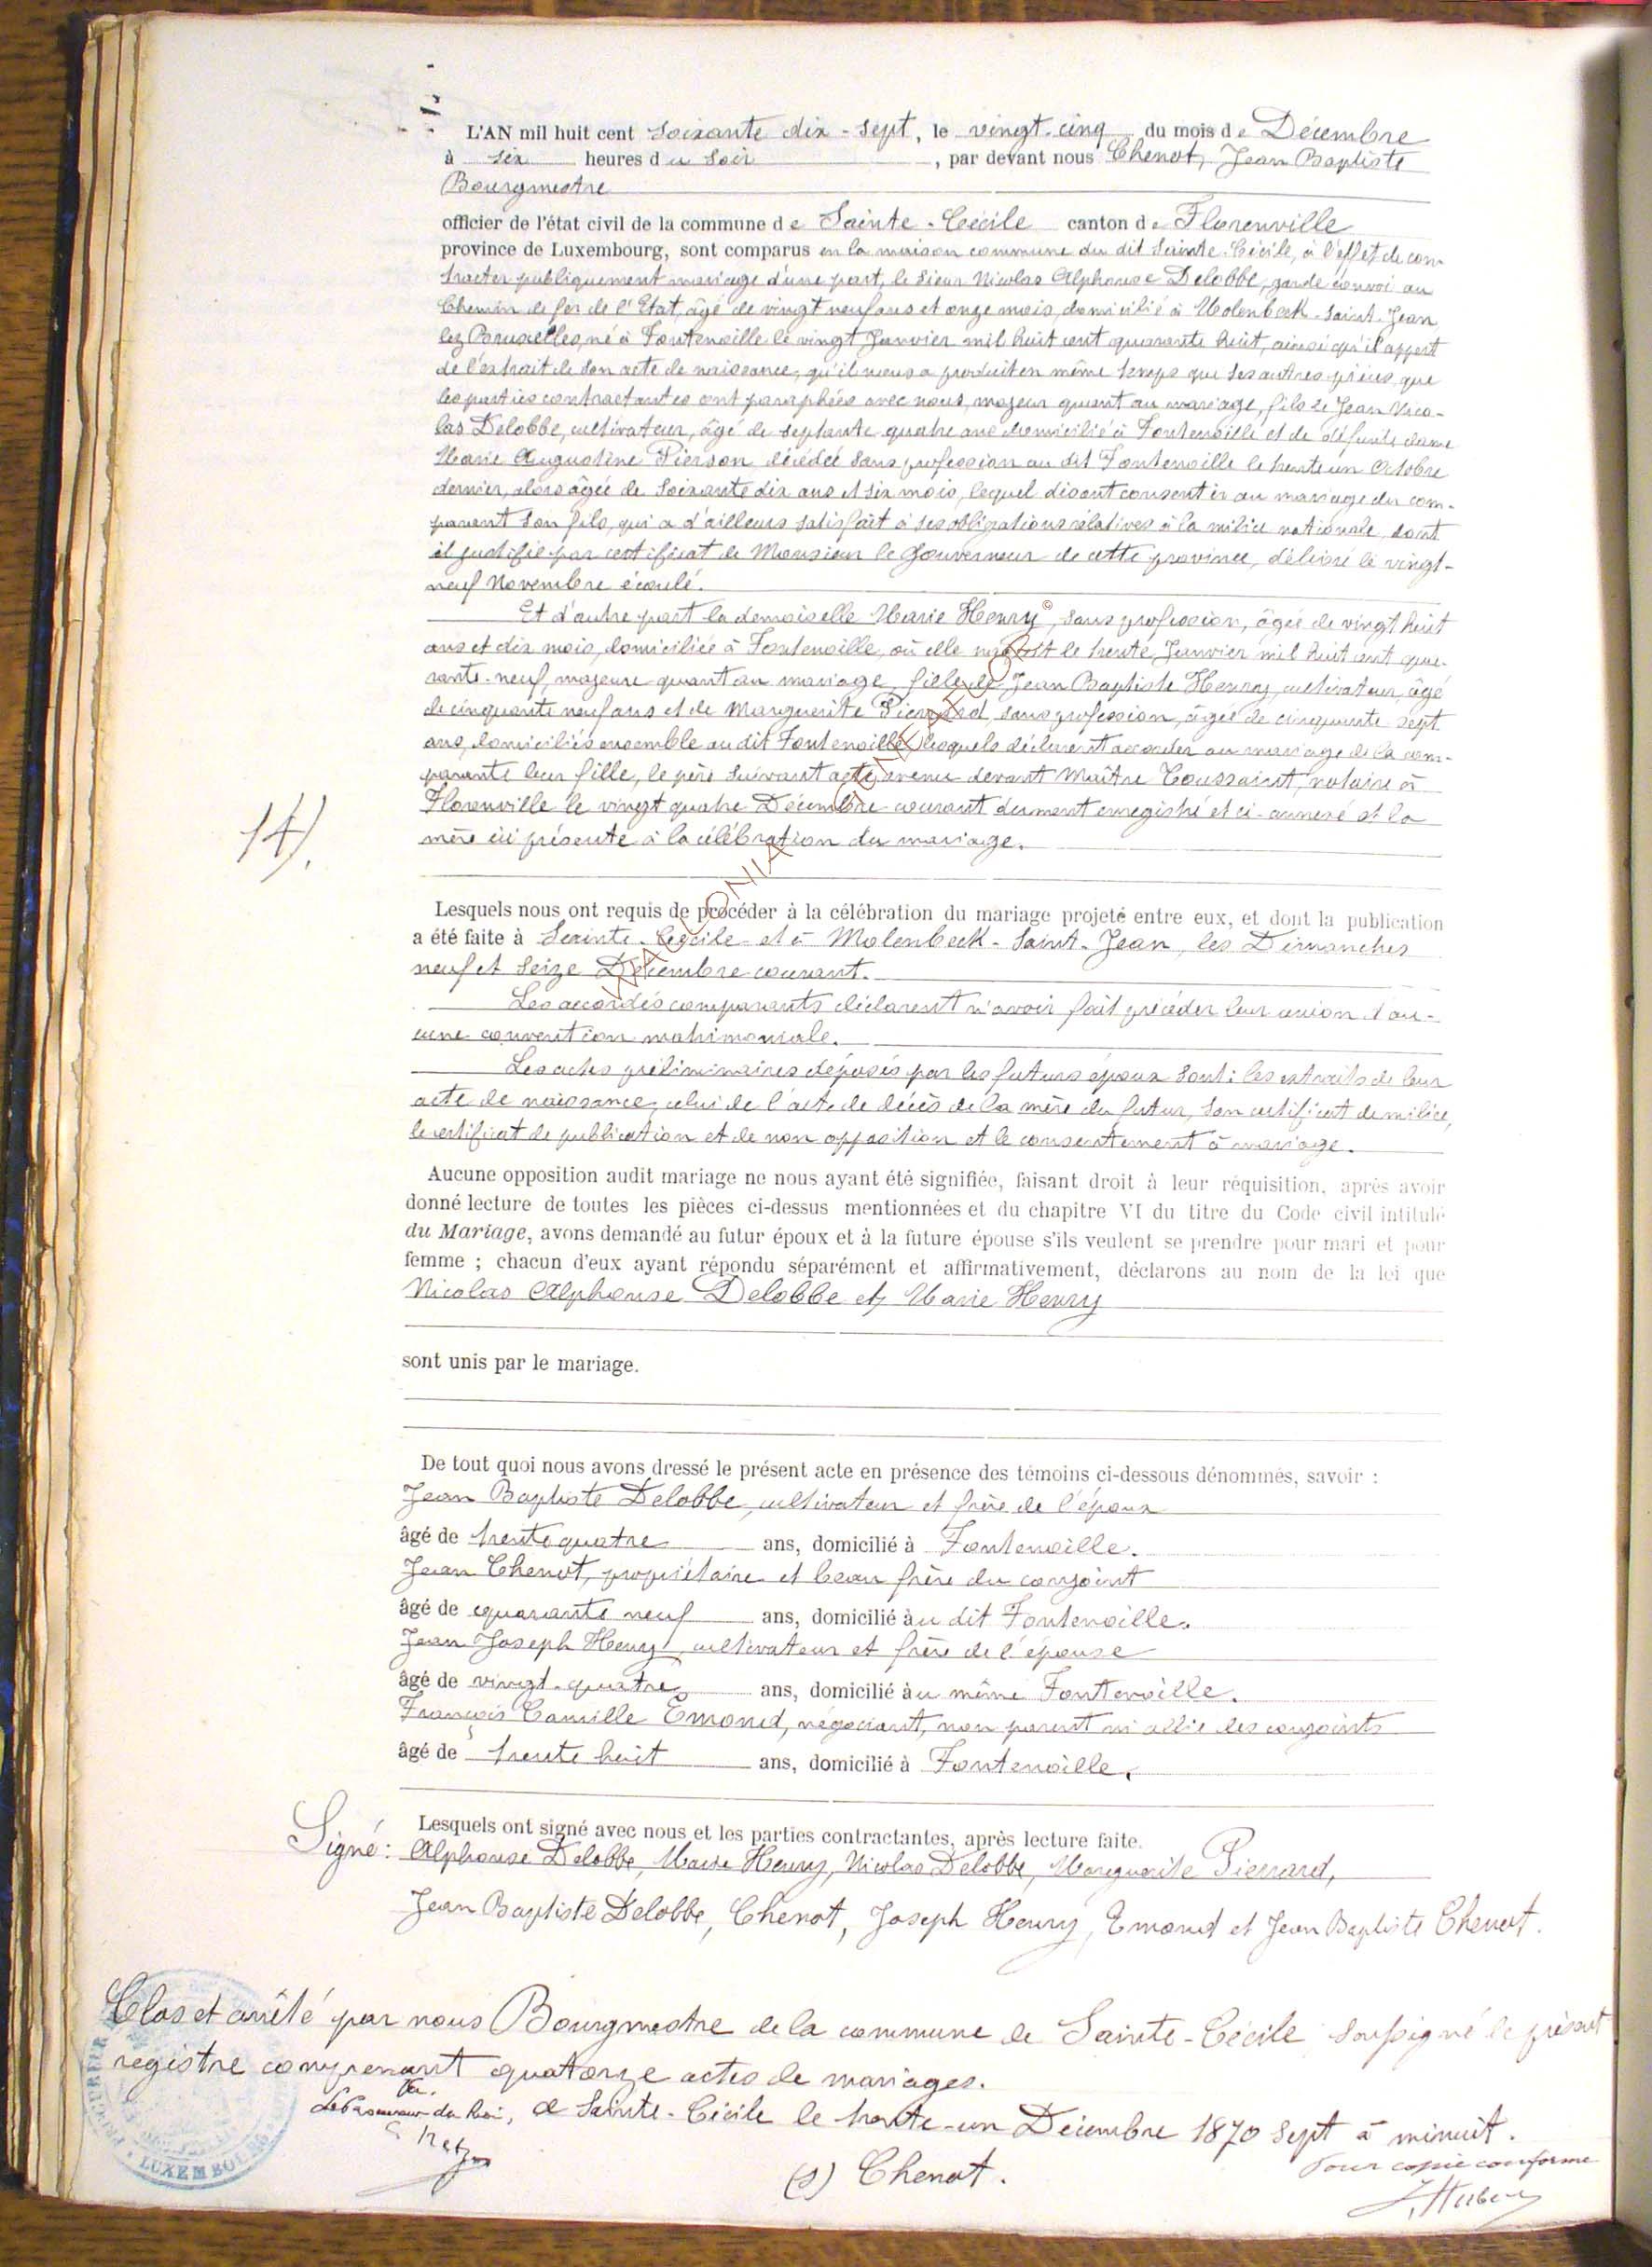 L'AN mil huit cent soixante dix-sept, le vingt-cinq du mois de Décembre
à six heures du soir, par devant nous Chenot, Jean Baptiste
Bourgmestre
officier de l'état civil de la commune de Sainte-Cécile canton de Florenville
province de Luxembourg, sont comparus en la maison commune du dit Sainte-Cécile, à l'effet de con-
tracter publiquement mariage d'une part, le sieur Nicolas Alphonse Delobbe, garde convoi au
Chemin de fer de l'Etat, âgé de vingt neuf ans et onze mois, domicilié à Molenbeek-Saint-Jean
lez Bruxelles, né à Fontenoille le vingt Janvier mil huit cent quarante huit, ainsi qu'il appert
de l'extrait de son acte de naissance, qu'il nous a produit en même temps que ses autres pièces, que
les parties contractantes ont paraphées avec nous, majeur quant au mariage, fils de Jean Nico-
las Delobbe, cultivateur, âgé de septante quatre ans domicilié à Fontenoille et de défunte dame
Marie Augustine Pierson décédée sans profession au dit Fontenoille le trente un Octobre
dernier, alors âgée de soixante dix ans et six mois, lequel disant consentir au mariage du com-
parant son fils, qui a d'ailleurs satisfait à ses obligations rélatives à la milice nationale, dont
il justifie par certificat de Monsieur le Gouverneur de cette province, délivré le vingt-
neuf Novembre écoulé.
Et d'autre part la demoiselle Marie Henry, sans profession, âgée de vingt huit
ans et dix mois, domiciliée à Fontenoille, où elle naquit le trente Janvier mil huit cent qua-
rante-neuf, majeure quant au mariage, fille de Jean Baptiste Henry, cultivateur, âgé
de cinquante neuf ans et de Marguerite Pierrard, sans profession, âgée de cinquante sept
ans, domiciliés ensemble au dit Fontenoille, lesquels déclarent accorder au mariage de la com-
parante leur fille, le père suivant acte avenu devant Maître Toussaint, notaire à
Florenville le vingt quatre Décembre courant dument enregistré et ci-annexé et la
mère ici présente à la célébration du mariage.
14).
Lesquels nous ont requis de procéder à la célébration du mariage projeté entre eux, et dont la publication
a été faite à Sainte-Cécile et à Molenbeek-Saint-Jean, les Dimanches
neuf et seize Décembre courant.
Les accordés comparants déclarent n'avoir fait précéder leur union d'au-
cune convention matrimoniale.
Les actes préliminaires déposés par les futurs époux sont: les extraits de leur
acte de naissance, celui de l'acte de décès de la mère du futur, son certificat de milice,
le certificat de publication et de non opposition et le consentement à mariage.
Aucune opposition audit mariage ne nous ayant été signifiée, faisant droit à leur réquisition, après avoir
donné lecture de toutes les pièces ci-dessus mentionnées et du chapitre VI du titre du Code civil intitulé
du Mariage, avons demandé au futur époux et à la future épouse s'ils veulent se prendre pour mari et pour
femme ; chacun d'eux ayant répondu séparément et affirmativement, déclarons au nom de la loi que
Nicolas Alphonse Delobbe et Marie Henry
sont unis par le mariage.
De tout quoi nous avons dressé le présent acte en présence des témoins ci-dessous dénommés, savoir :
Jean Baptiste Delobbe, cultivateur et frère de l'époux
âgé de trente quatre ans, domicilié à Fontenoille.
Jean Chenot, propriétaire et beau frère du conjoint
âgé de quarante neuf ans, domicilié au dit Fontenoille.
Jean Joseph Henry, cultivateur et frère de l'épouse
âgé de vingt-quatre ans, domicilié au même Fontenoille.
François Camille Emond, négociant, non parent ni allié des conjoints
âgé de trente huit ans, domicilié à Fontenoille.
Lesquels ont signé avec nous et les parties contractantes, après lecture faite.
Signé: Alphonse Delobbe, Marie Henry, Nicolas Delobbe, Marguerite Pierrard,
Jean Baptiste Delobbe, Chenot, Joseph Henry, Emond et Jean Baptiste Chenot.
Clos et arrêté par nous Bourgmestre de la commune de Sainte-Cécile soussigné le présent
registre comprenant quatorze actes de mariages.
du Roi, A Sainte-Cécile le trente-un Décembre 1870 sept à minuit.
(s) Chenot.
Pour copie conforme
LUXEMBOURG
WALLONIA GENEALOGIE ©